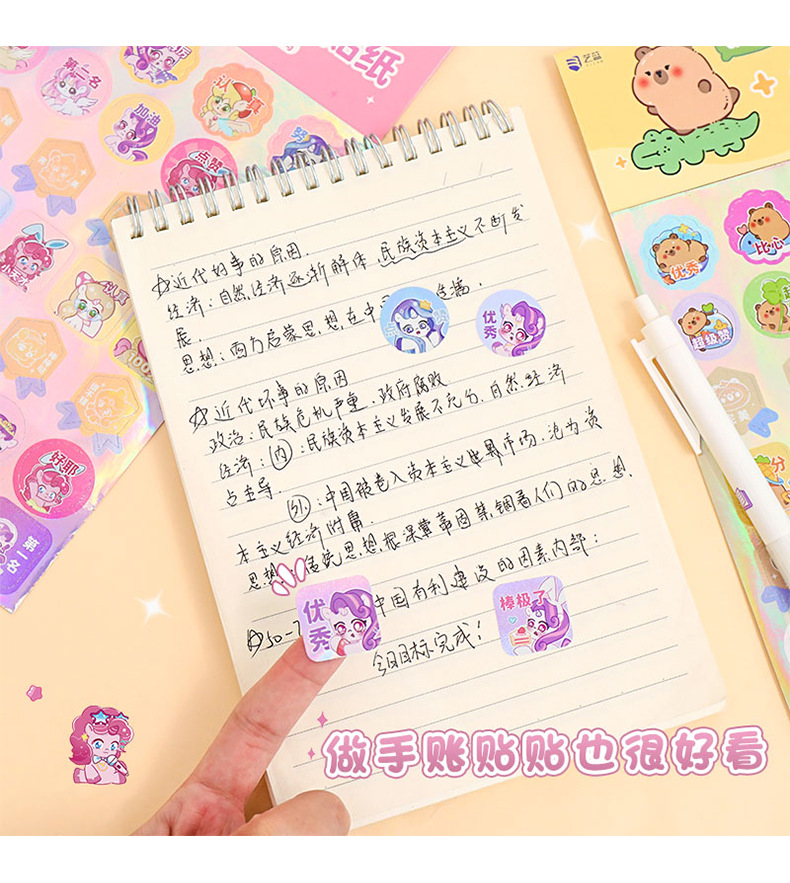 贴纸
艺蓝
第一名
加油
认真
点赞
努
优秀
比心
超级赞
认真
100
好耶
第一名
分
☆近代好事的原因.
经济：自然经济逐渐解体，民族资本主义不断发
展.
思想：西方启蒙思想，在中 传播.
优秀
☆近代坏事的原因
政治：民族危机严重.政府腐败
经济：内：民族资本主义发展不充分，自然经济
占主导.
外：中国被卷入资本主义世界市场，沦为资
本主义经济附庸.
思想：传统思想根深蒂固禁锢着人们的思想.
☆50-7 中国有利建设的因素内部：
优秀
棒极了
今日目标完成！
做手账贴贴也很好看